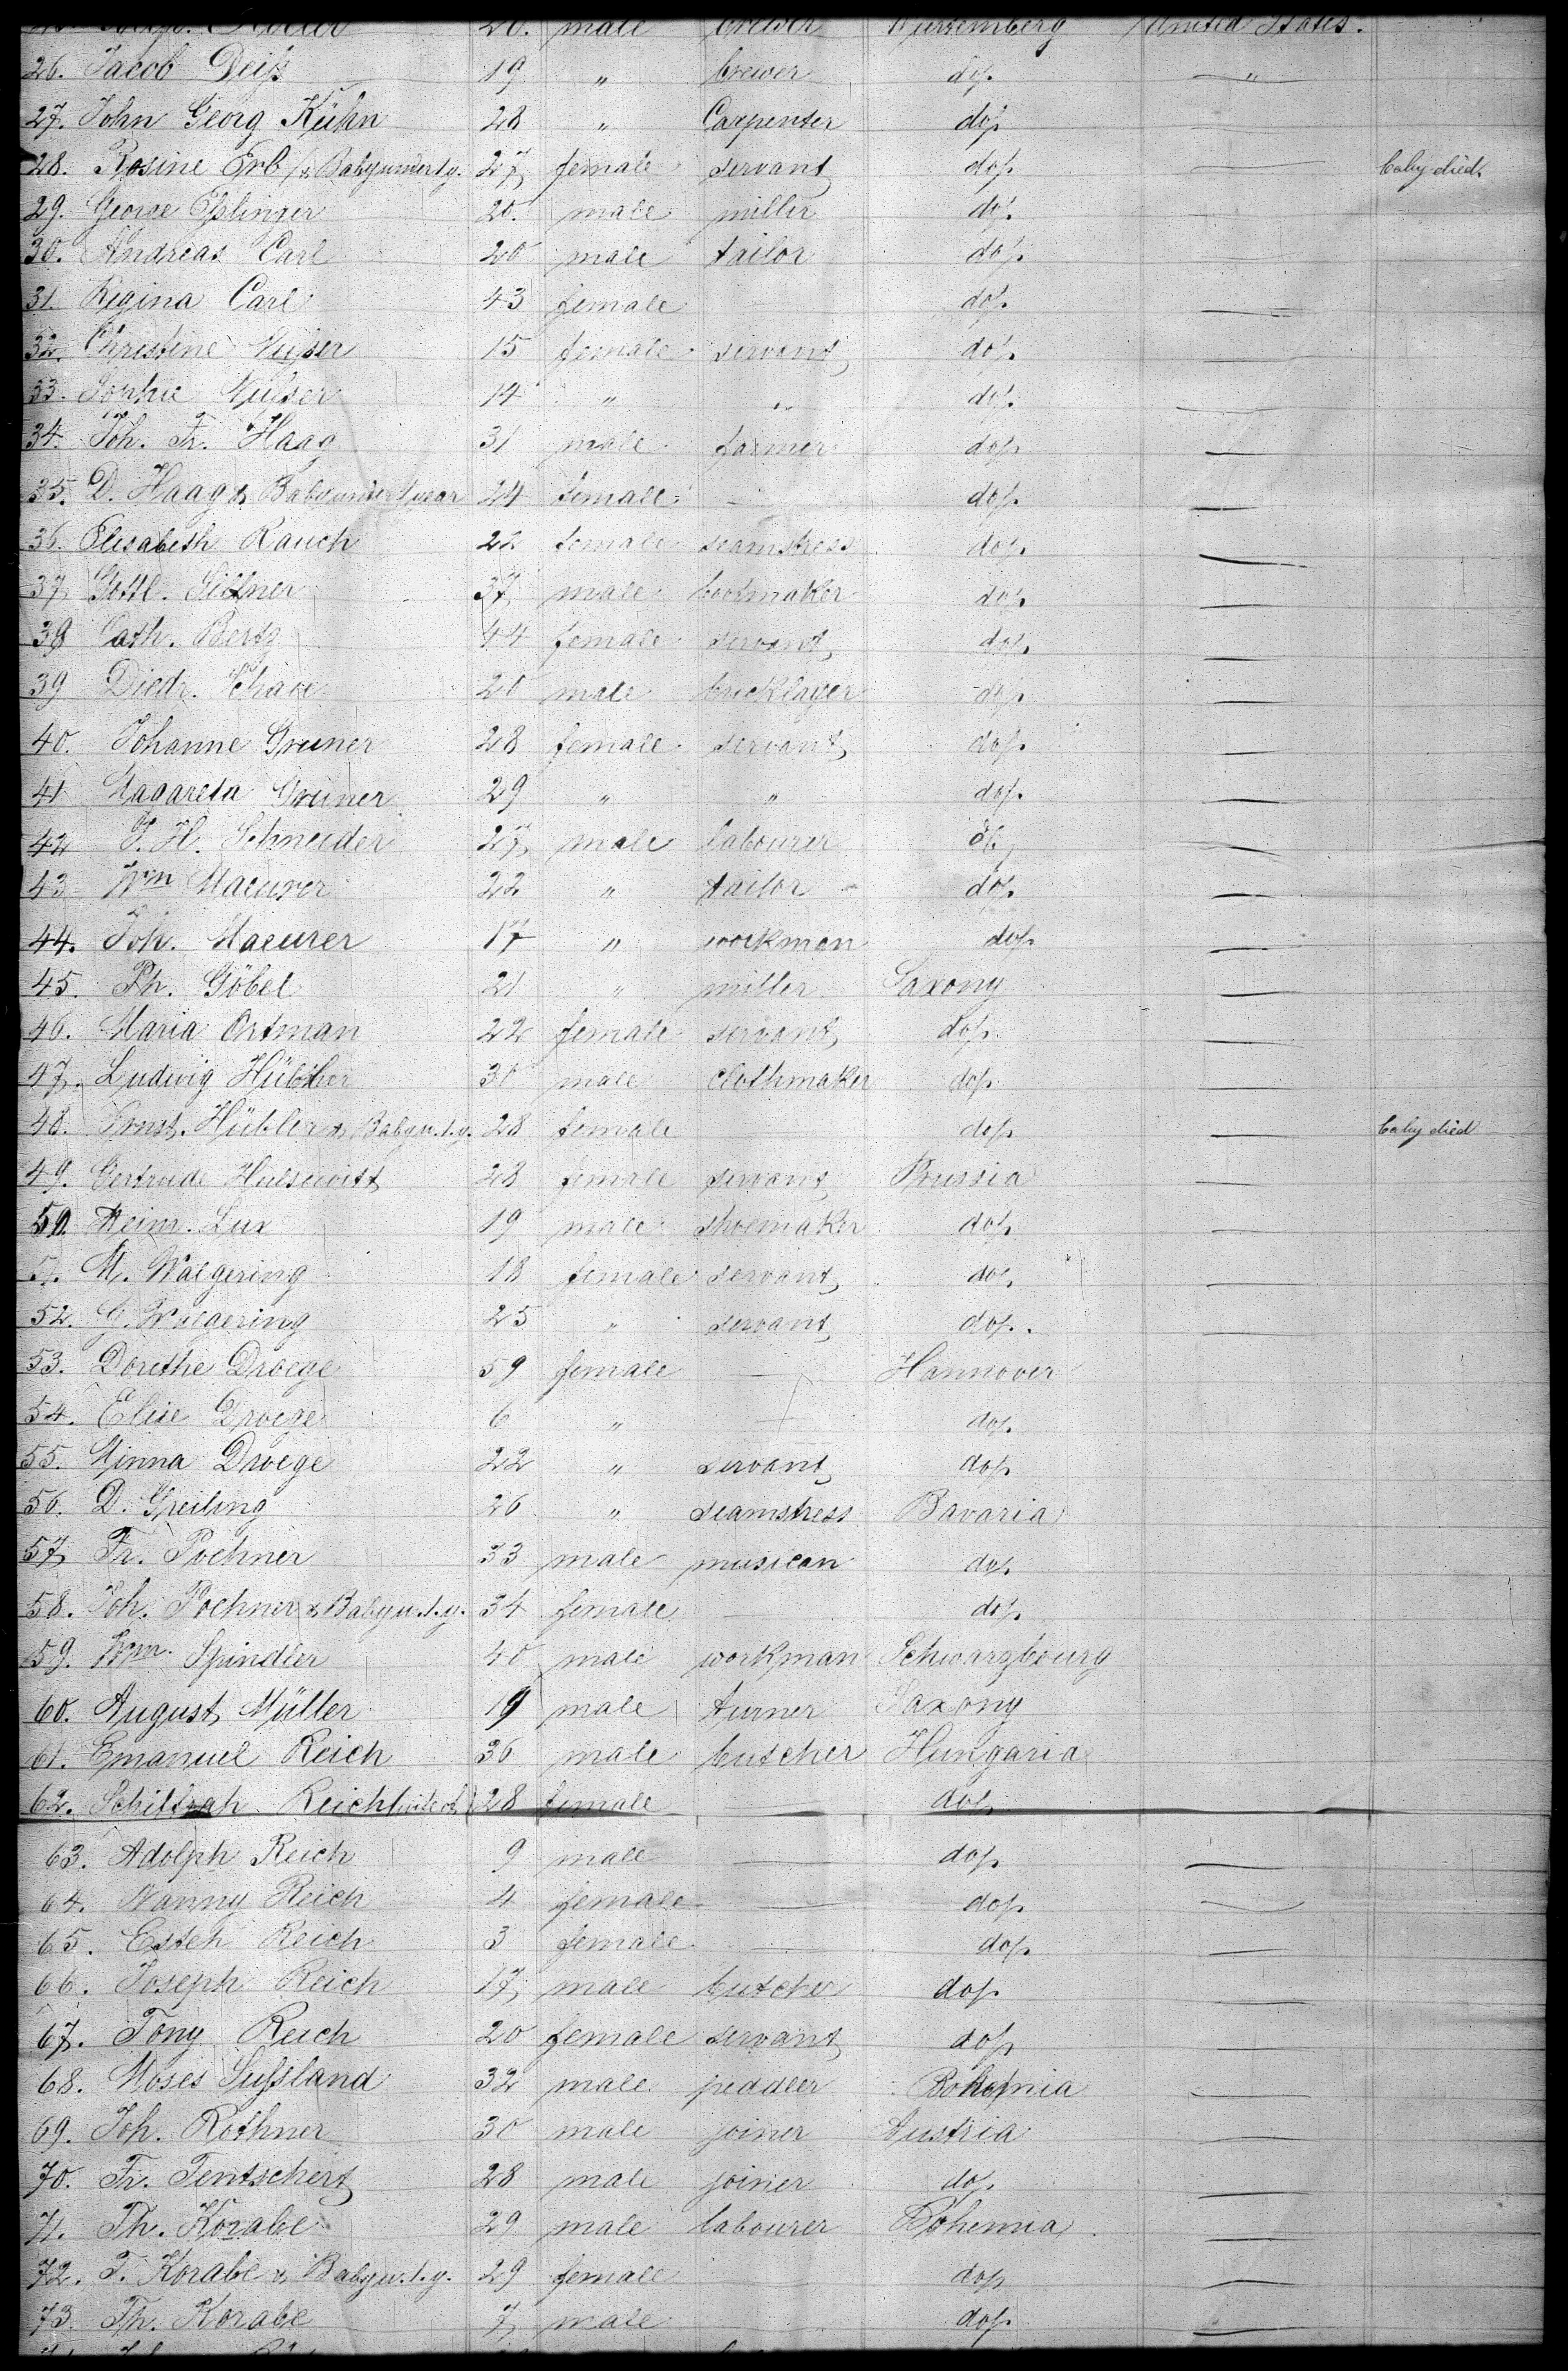 20. male brewer Wurtemberg United States.
26. Jacob Deiß 19 " brewer do. "
27. John Georg Kühn 28 " Carpenter do.
28. Rosine Erb & Baby under 1 y. 27 female servant do. — baby died.
29. George Eßlinger 20. male miller do. —
30. Andreas Carl 20 male tailor do. —
31. Regina Carl 43 female do. —
32. Christine 15 female servant do. —
33. Sophie 14 " " do. —
34. Joh. Fr. Haag 31 male farmer do. —
35. D. Haag & Baby under 1 year 24 female — do. —
36. Elisabeth Rauch 22 female seamstress do. —
37. Gottl. 37 male bootmaker do. —
38 Cath. Bertz 44 female servant do. —
39 Diedr. 20 male bricklayer do. —
40. Johanne Greiner 28 female servant do. —
41 Magareta Greiner 29 " " do. —
42 J. H. Schneider 27 male labourer do. —
43 Wm Maeurer 22 " tailor do. —
44. Joh. Maeurer 17 " workman do. —
45. Ph. Göbel 21 " miller Saxony —
46. Maria Ortman 22 female servant do. —
47. Ludwig 30 male clothmaker do. —
48. Ernst. Hübler & Baby u. 1. y. 28 female do. — baby died
49. Gertrude Hulsewitt 28 female servant Prussia —
50. Heinr. Lux 19 male shoemaker do. —
51. M. Waegering 18 female servant do. —
52. G. Waegering 25 " servant do. —
53. Dorethe Droege 59 female — Hannover
54. Elise Droege 6 " — do.
55. Minna Droege 22 " servant do.
56. D. Greiling 26 " seamstress Bavaria
57. Fr. Poehner 33 male musican do.
58. Joh. Poehner & Baby u. 1. y. 34 female — do.
59. Wm. Spindler 40 male workman Schwarzbourg
60. August Müller 19 male turner Saxony
61. Emanuel Reich 36 male butcher Hungaria
62. Reich 28 female do.
63. Adolph Reich 9 male — do. —
64. Nanny Reich 4 female — do. —
65. Esteh Reich 3 female — do. —
66. Joseph Reich 17 male butcher do. —
67. Tony Reich 20 female servant do. —
68. Moses Sußland 32 male peddler Bohemia —
69. Joh. Rothner 30 male joiner Austria —
70. Fr. Tentschert 28 male joiner do. —
71. Th. Korabe 29 male labourer Bohemia —
72. T. Korabe & Baby u. 1. y. 29 female do. —
73. Th. Korabe 7 male do. —